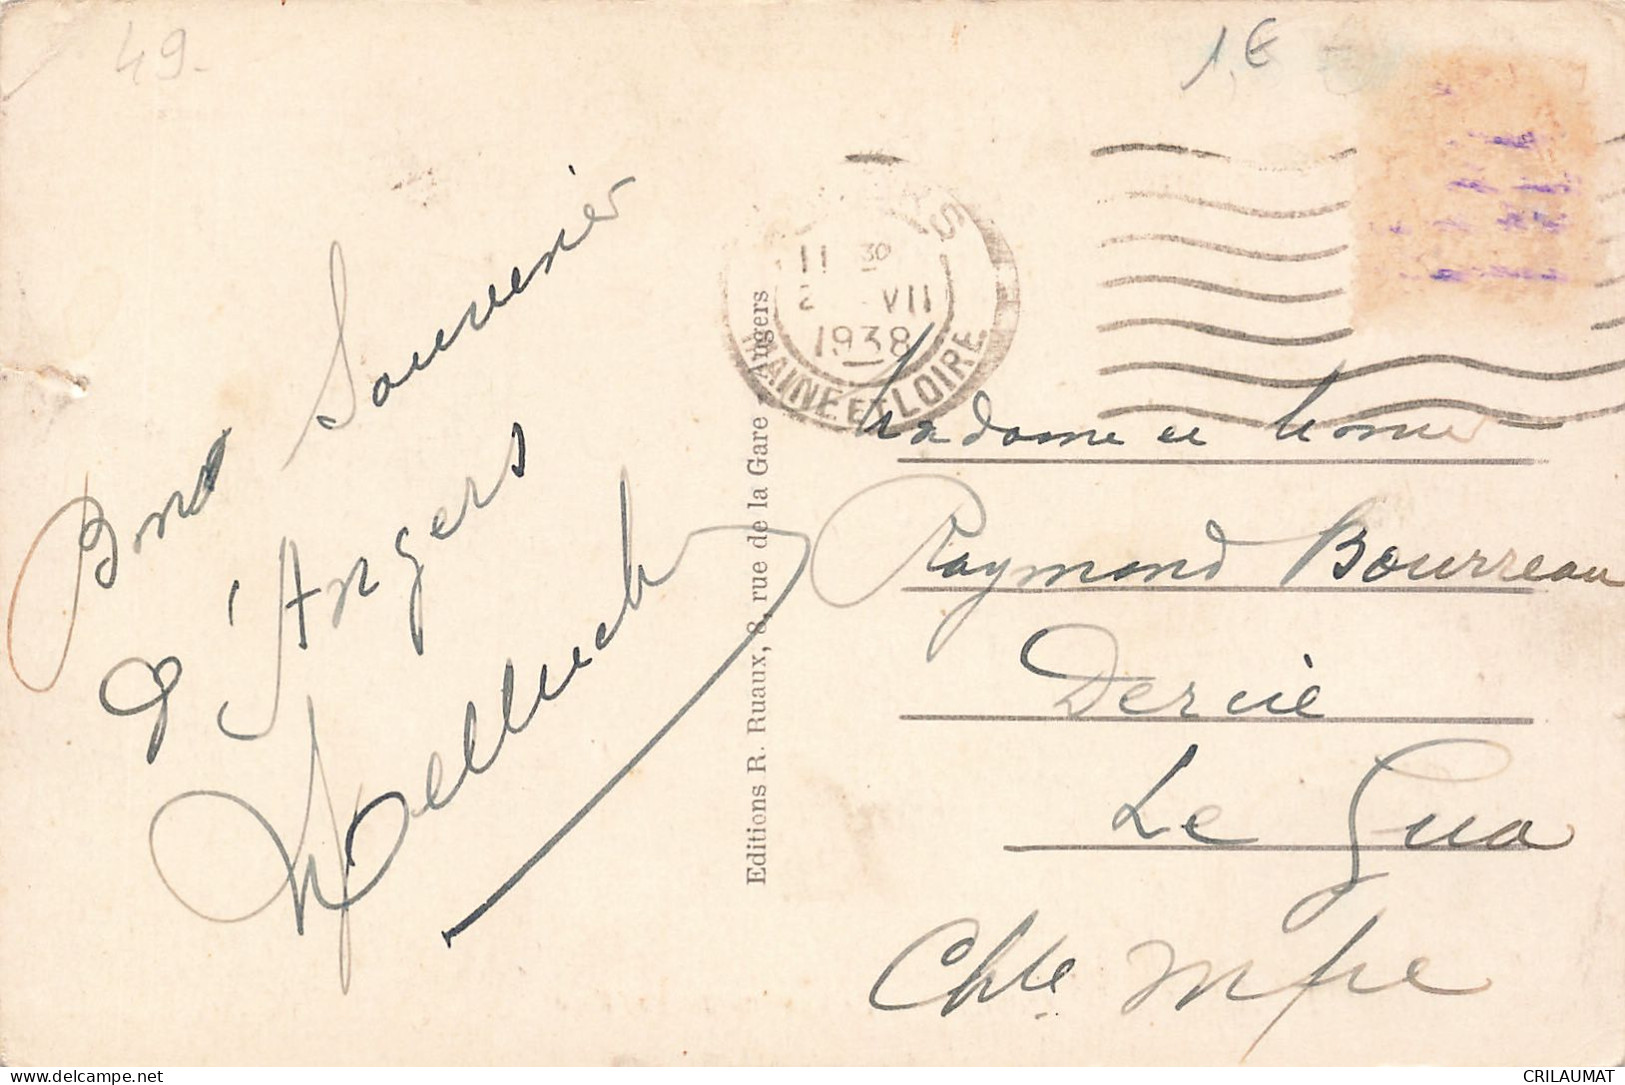 49.
1,€
Bons Souvenir
d'Angers
ANGERS
11 30
2 VII
1938
MAINE ET LOIRE
Editions R. Ruaux, 8, rue de la Gare Angers
Madame et
Raymond Bourreau
Dercie
Le Gua
Chte Infre
delcampe.net
CRILAUMAT